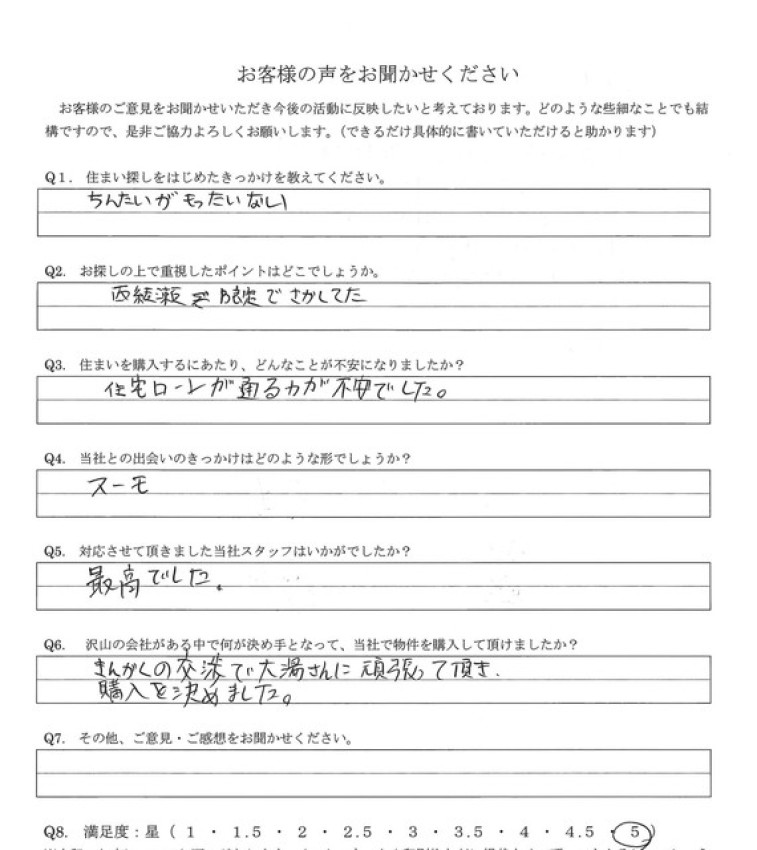 お客様の声をお聞かせください
お客様のご意見をお聞かせいただき今後の活動に反映したいと考えております。どのような些細なことでも結
構ですので、是非ご協力よろしくお願いします。(できるだけ具体的に書いていただけると助かります)
Q1. 住まい探しをはじめたきっかけを教えてください。
ちんたいがもったいない
Q2. お探しの上で重視したポイントはどこでしょうか。
西綾瀬 限定でさがしてた
Q3. 住まいを購入するにあたり、どんなことが不安になりましたか?
住宅ローンが通るカが不安でした。
Q4. 当社との出会いのきっかけはどのような形でしょうか?
スーモ
Q5. 対応させて頂きました当社スタッフはいかがでしたか?
最高でした.
Q6. 沢山の会社がある中で何が決め手となって、当社で物件を購入して頂けましたか?
きんがくの交渉で大湯さんに頑張って頂き.
購入を決めました。
Q7. その他、ご意見・ご感想をお聞かせください。
Q8. 満足度:星( 1 ・ 1.5 ・ 2 ・ 2.5 ・ 3 ・ 3.5 ・ 4 ・ 4.5 ・ 5 )